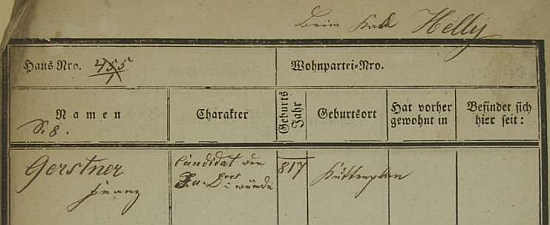 Beim Helly
Haus Nro. 455/1 Wohnpartei-Nro.
Namen Charakter Geburts Jahr Geburtsort Hat vorher gewohnt in Befindet sich hier seit:
S. 8.
Gerstner Candidat der 817 Kuttenplan
Franz würde